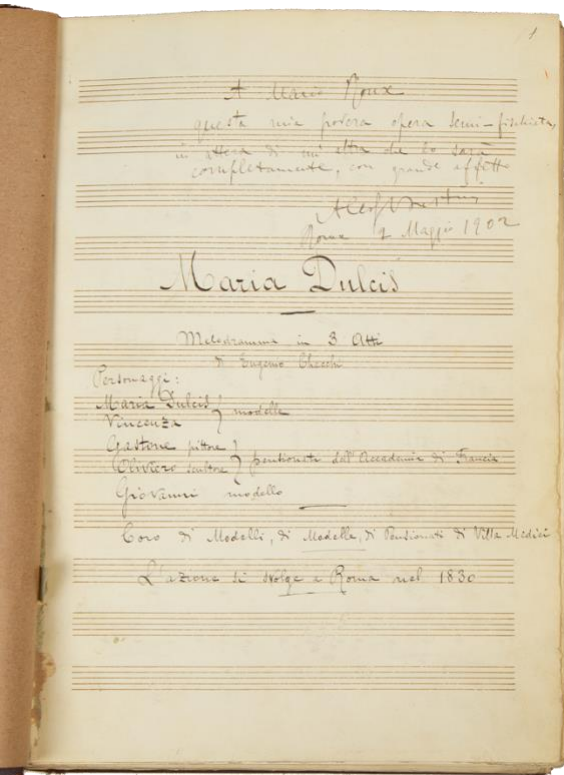 1
A Mario Roux
questa mia povera opera semi-fischiata,
in attesa di un'altra che lo sarà
completamente, con grande affetto
Roma 2 Maggio 1902
Maria Dulcis
Melodramma in 3 Atti
di Eugenio Checchi
Personaggi:
Maria Dulcis } modelle
Vincenza
Gastone pittore } pensionati dell'Accademia di Francia
Oliviero scultore
Giovanni modello
Coro di Modelli, di Modelle, di Pensionati di Villa Medici
L'azione si svolge a Roma nel 1830